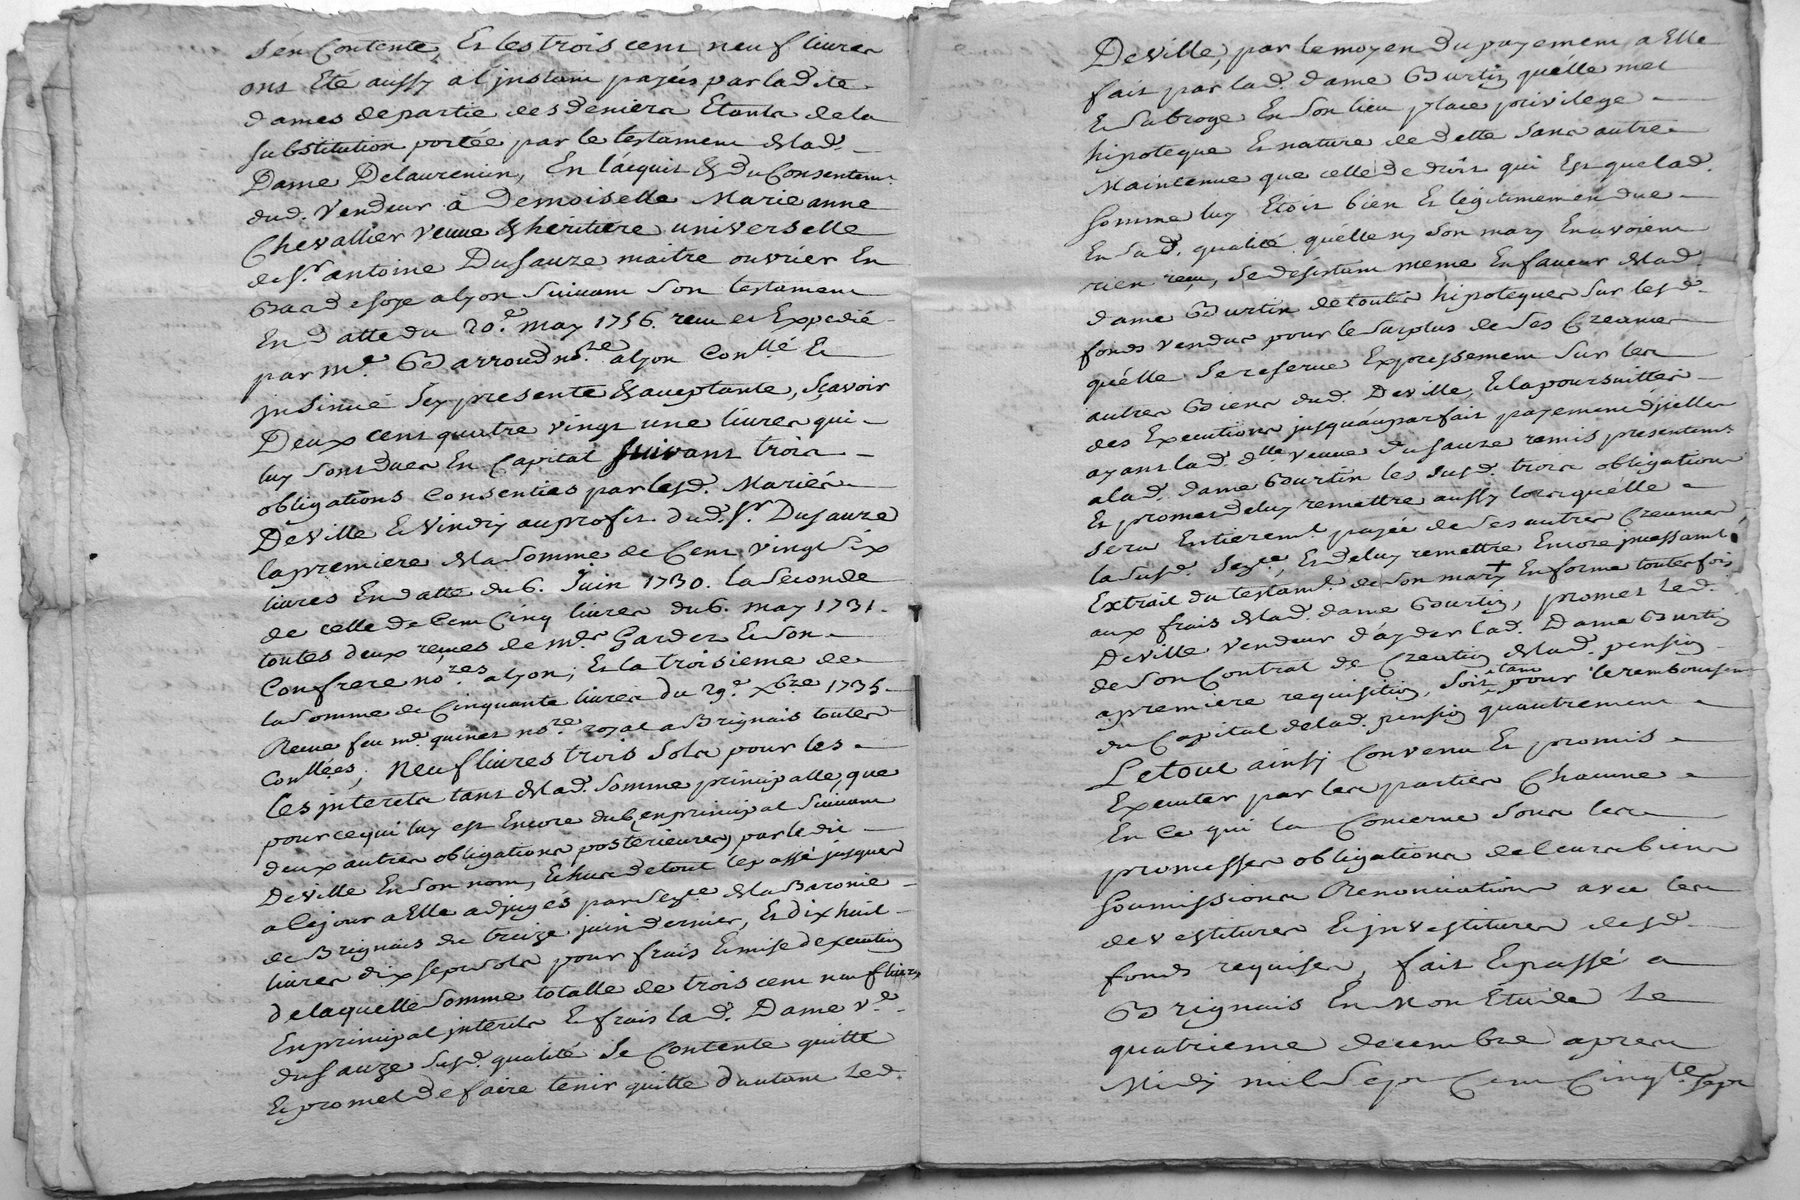 s'en Contente, Et les trois cent neuf livres
ont Eté aussy a l'jnstant payés par lad.te
dames de partie des deniers Etants de la
substitution portée par le testament de lad.
Dame Delaurencin, En l'acquit & du Consentem.t
dud. Vendeur à Demoiselle Marie anne
Chevallier veuve & heritiere universelle
de S.r antoine Dusauze maitre ouvrier En
Bas de soye a lyon suivant son testament
En datte du 20.e may 1756. receu et Expedié
par m.e Barroud no.re a lyon Con.llé Et
jnsinué icy presente & aceptante, scavoir
Deux cent quatre vingt une livres qui
luy sont dues En Capital suivant trois
obligations Consenties par lesd. Mariés
Deville Et Vindry au profit dud. S.r Dusauze
la premiere de la somme de Cent vingt six
livres En datte du 6. Juin 1730. la Seconde
de celle de Cent Cinq livres du 6. may 1731.
toutes deux receues de m.es Gardes Et son
Confrere no.res a lyon, Et la troisieme de
la somme de Cinquante livres du 29.e x.bre 1735
Receue feu m.e quinet no.re royal a Brignais toutes
Con.llées; Neuf livres trois sols pour les
les jnterets tant de lad. somme principalle, que
pour ce qui luy est Encore dub en principal suivant
deux autres obligations posterieures par led.
Deville En son nom, Echus de tout le passé jusques
a ce jour a Elle adjugés par Sez.ce de la Baronie
de Brignais du treize juin dernier, Et dix huit
livres dix sept sols pour frais Et mise d'execution
de laquelle somme totalle de trois cent neuf livres
En principal jnterets Et frais lad. Dame v.e
dusauze susd. qualité se Contente quitte
Et promet de faire tenir quitte d'autant led.
Deville, par le moyen du payement a Elle
fait par lad. dame Burtin qu'elle met
Et subroge En son lieu place privilege
hipoteque Et nature de dette sans autre
Maintenue que celle de droit qui Est que lad.
somme luy Etoit bien Et légitimement due
En sad. qualité qu'elle ny son mary En avoient
rien reçu, se desistant meme En faveur de lad.
dame Burtin de toutes hipoteques sur lesd.
fonds vendus pour le surplus de ses Creances
qu'elle se reserve Expressement sur les
autres Biens dud. Deville, Et la poursuitte
des Executions jusqu'au parfait payement d'jcelles
ayant lad. d.lle veuve dusauze remis presentem.t
a lad. dame Burtin les susd. trois obligations
Et promet de luy remettre aussy lorsqu'elle
sera Entierem.t payée de ses autres Creances
la susd. Sez.ce, Et de luy remettre Encore jncessam.t
Extrait du testam.t de son mary + En forme toutes fois
aux frais de lad. dame Burtin, promet led.
Deville vendeur d'ayder lad. Dame Burtin
de son Contrat de Creation de lad. pension
a premiere requisition, soit tant pour le rembousem.t
du Capital de lad. pension qu'autrement
Le tout ainsy Convenu Et promis
Executer par les parties Chacune
En ce qui la Concerne sous les
promesses obligations de leurs biens
soumissions Renonciations avec les
devestitures Et jnvestitures desd.
fonds requises, fait Et passé a
Brignais En Mon Etude le
quatrieme decembre apres
Midy mil sept Cent Cinq.te sept